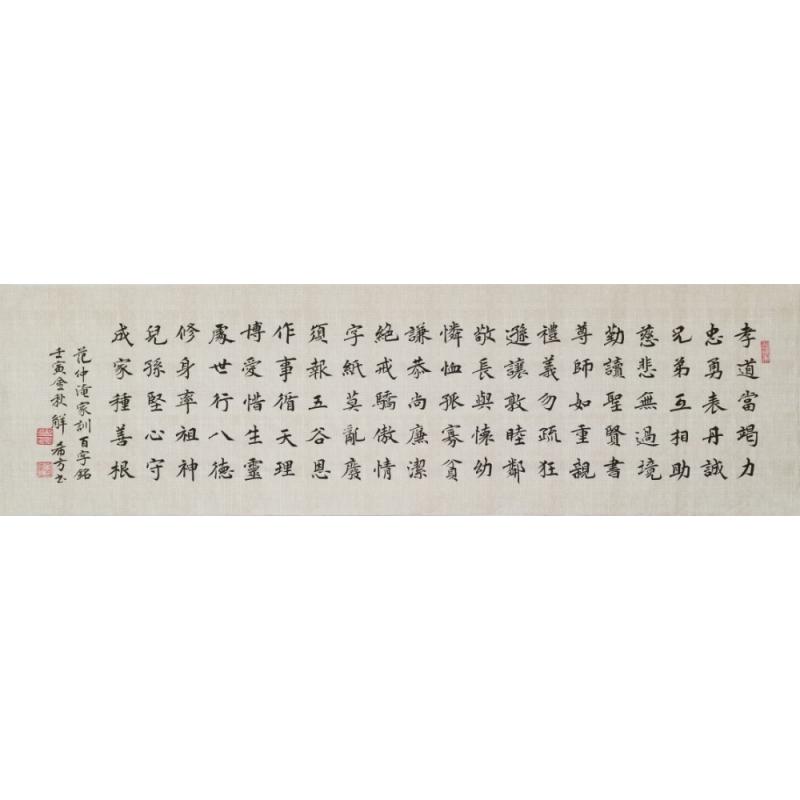 孝道當竭力
忠勇表丹誠
兄弟互相助
慈悲無過境
勤讀聖賢書
尊師如重親
禮義勿疏狂
遜讓敦睦鄰
敬長與懷幼
憐恤孤寡貧
謙恭尚廉潔
絕戒驕傲情
字紙莫亂廢
須報五谷恩
作事循天理
博愛惜生靈
處世行八德
修身率祖神
兒孫堅心守
成家種善根
范仲淹家訓百字銘
壬寅金秋 解希方书